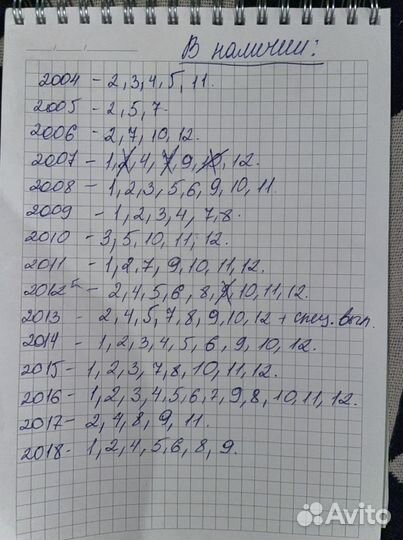 В наличии:
2004 - 2, 3, 4, 5, 11.
2005 - 2, 5, 7.
2006 - 2, 7, 10, 12.
2007 - 1, 2, 4, 7, 9, 10, 12.
2008 - 1, 2, 3, 5, 6, 9, 10, 11.
2009 - 1, 2, 3, 4, 7, 8.
2010 - 3, 5, 10, 11, 12.
2011 - 1, 2, 7, 9, 10, 11, 12.
2012 - 2, 4, 5, 6, 8, 9, 10, 11, 12.
2013 - 2, 4, 5, 7, 8, 9, 10, 12 + спец. вып.
2014 - 1, 2, 3, 4, 5, 6, 9, 10, 12.
2015 - 1, 2, 3, 7, 8, 10, 11, 12.
2016 - 1, 2, 3, 4, 5, 6, 7, 9, 8, 10, 11, 12.
2017 - 2, 4, 8, 9, 11.
2018 - 1, 2, 4, 5, 6, 8, 9.
Avito